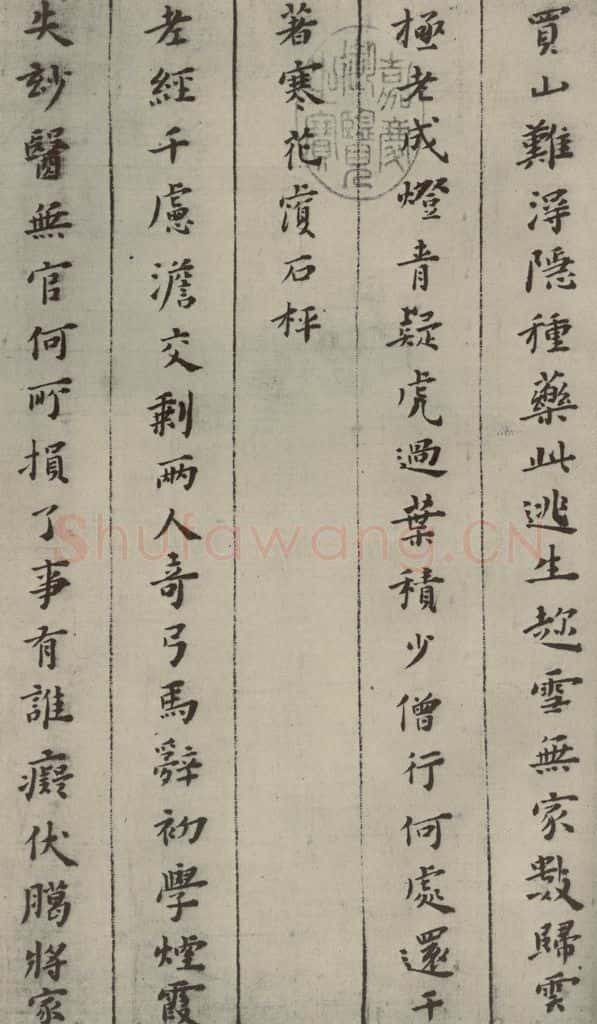 買山難淂隱種藥此逃生趂雪無家數歸雲
極老成燈青疑虎過葉積少僧行何處還干
著寒花石枰
老經千慮澹交剩兩人奇弓馬辭初學煙霞
失玅醫無官何所損了事有誰癡伏臈將家
嘉慶御覽之寶
Shufawang.CN